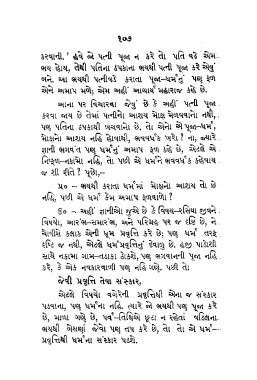 ૧૦૭
કરવાની. ' હવે એ પત્ની પૂજા ન કરે તો પતિ વઢે એમ
ભય હોય, તેથી પતિના ઠપકાના ભયથી પત્ની પૂજા કરે એવું
બને. આ ભયથી પત્નીવડે કરાતા પૂજા-ધર્મનું પણ ફળ
એને અમાપ મળે; એમ અહીં આચાર્ય મહારાજ કહે છે.
આના પર વિચારવા જેવું છે કે અહીં પત્ની પૂજા
કરવા જાય છે તેમાં પત્નીનો આશય મોક્ષ મેળવવાનો નથી,
પણ પતિના ઠપકાથી બચવાનો છે. તો એનો એ પૂજા-ધર્મ,
મોક્ષનો આશય નહિ હોવાથી, ભવવર્ધક ખરો ? ના, જ્યારે
જ્ઞાની ભગવંત પણ ધર્મનું અમાપ ફળ કહે છે, એટલે એ
નિષ્ફળ-નકામો નહિ, તો પછી એ ધર્મને ભવવર્ધક કહેવાય
જ શી રીતે ? પૂછો,–
પ્ર૦ – ભયથી કરાતા ધર્મમાં મોક્ષનો આશય તો છે
નહિ, પછી એ ધર્મ કેમ અમાપ ફળવાળો ?
ઉ૦ – અહીં જ્ઞાનીઓ જુએ છે કે વિષય-રસિયા જીવને
વિષયો, આરંભ-સમારંભ, અને પરિગ્રહ પર જ દૃષ્ટિ છે, ને
ચોવીસે કલાક એની ધૂમ પ્રવૃત્તિ કરે છે; પણ ધર્મ તરફ
દૃષ્ટિ જ નથી, એટલે ધર્મપ્રવૃત્તિનું દેવાળું છે. હજી પાડોશી
સાથે નકામા ગામ-તડાકા ઠોકશે, પણ ભગવાનની પૂજા નહિ
કરે, કે એક નવકારવાળી પણ નહિ ગણે. પછી તો
જેવી પ્રવૃત્તિ તેવા સંસ્કાર,
એટલે વિષયો વગેરેની પ્રવૃત્તિથી એના જ સંસ્કાર
પડવાના, પણ ધર્મના નહિ. ત્યારે એ ભયથી પણ પૂજા કરે
છે, માળા ગણે છે, પર્વ-તિથિએ છૂટા ન રહેતાં વડિલના
ભયથી બેસણાં જેવો પણ તપ કરે છે, તો તો એ ધર્મ–
પ્રવૃત્તિથી ધર્મના સંસ્કાર પડશે.